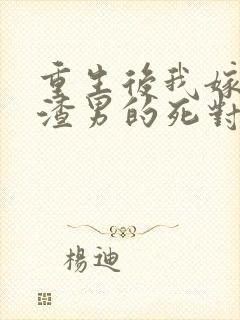 重生後我嫁
渣男的死對
楊迪